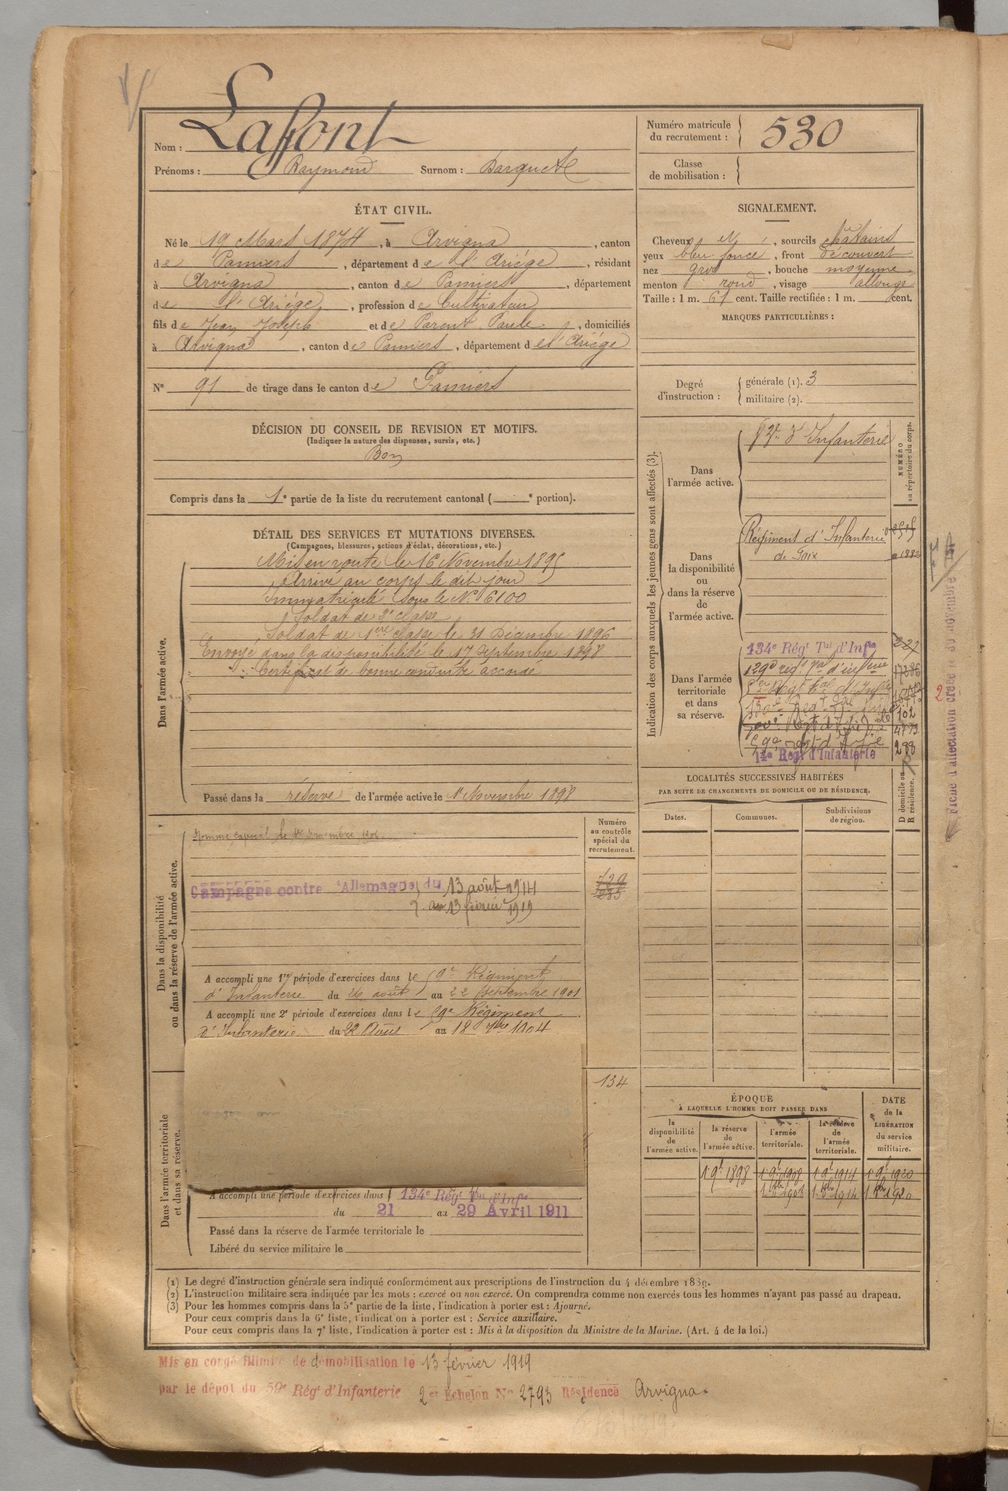 Nom : Laffont
Prénoms : Raymond Surnom : Barquet
Numéro matricule du recrutement : 530
Classe de mobilisation :
ÉTAT CIVIL.
Né le 19 Mars 1874, à Arvigna, canton
de Pamiers, département de l'Ariége, résidant
à Arvigna, canton de Pamiers, département
de l'Ariége, profession de Cultivateur
fils de Jean Joseph et de Parent Paule, domiciliés
à Arvigna, canton de Pamiers, département de l'Ariége
N° 91 de tirage dans le canton de Pamiers
SIGNALEMENT.
Cheveux et, sourcils châtains
yeux bleu foncé, front découvert
nez gros, bouche moyenne
menton rond, visage allongé
Taille : 1 m. 61 cent. Taille rectifiée : 1 m. cent.
MARQUES PARTICULIÈRES :
Degré d'instruction : générale (1). 3
militaire (2).
DÉCISION DU CONSEIL DE REVISION ET MOTIFS.
(Indiquer la nature des dispenses, sursis, etc.)
Bon
Compris dans la 1e partie de la liste du recrutement cantonal ( e portion).
DÉTAIL DES SERVICES ET MUTATIONS DIVERSES.
(Campagnes, blessures, actions d'éclat, décorations, etc.)
Dans l'armée active.
Mis en route le 16 Novembre 1895
Arrivé au corps le dit jour
Immatriculé sous le N° 6100
Soldat de 2e classe
Soldat de 1ère classe le 31 Décembre 1896
Envoyé dans la disponibilité le 17 Septembre 1898
Certificat de bonne conduite accordé
Passé dans la réserve de l'armée active le 1er Novembre 1898
Indication des corps auxquels les jeunes gens sont affectés (3).
NUMÉRO au répertoire du corps.
Dans l'armée active.
d'Infanterie
Dans la disponibilité ou dans la réserve de l'armée active.
Régiment d'Infanterie
de Foix
Dans l'armée territoriale et dans sa réserve.
134e Régt Tal d'Infie
129e
102
59e
14e Régt d'Infanterie
Dans la disponibilité ou dans la réserve de l'armée active.
Numéro au contrôle spécial du recrutement.
Campagne contre l'Allemagne du 13 août 1914
au 13 février 1919
A accompli une 1re période d'exercices dans le 59e Régiment
d'Infanterie du 26 août au 22 Septembre 1901
A accompli une 2e période d'exercices dans le 59e Régiment
d'Infanterie du 22 Août au 18 7bre 1904
134
Dans l'armée territoriale et dans sa réserve.
A accompli une période d'exercices dans l 134e Régt Tal d'Infie
du 21 au 29 Avril 1911
Passé dans la réserve de l'armée territoriale le
Libéré du service militaire le
LOCALITÉS SUCCESSIVES HABITÉES
PAR SUITE DE CHANGEMENTS DE DOMICILE OU DE RÉSIDENCE.
Dates. Communes. Subdivisions de région. D domicile ou R résidence.
ÉPOQUE
À LAQUELLE L'HOMME DOIT PASSER DANS
la disponibilité de l'armée active.
la réserve de l'armée active.
l'armée territoriale.
la réserve de l'armée territoriale.
DATE de la LIBÉRATION du service militaire.
1 9bre 1898 1 9bre 1908 1 9bre 1914 1 9bre 1920
(1) Le degré d'instruction générale sera indiqué conformément aux prescriptions de l'instruction du 4 décembre 1889.
(2) L'instruction militaire sera indiquée par les mots : exercé ou non exercé. On comprendra comme non exercés tous les hommes n'ayant pas passé au drapeau.
(3) Pour les hommes compris dans la 5e partie de la liste, l'indication à porter est : Ajourné.
Pour ceux compris dans la 6e liste, l'indication à porter est : Service auxiliaire.
Pour ceux compris dans la 7e liste, l'indication à porter est : Mis à la disposition du Ministre de la Marine. (Art. 4 de la loi.)
Mis en congé illimité de démobilisation le 13 février 1919
par le dépôt du 59e Régt d'Infanterie 2e Echelon N° 2793 Résidence Arvigna.